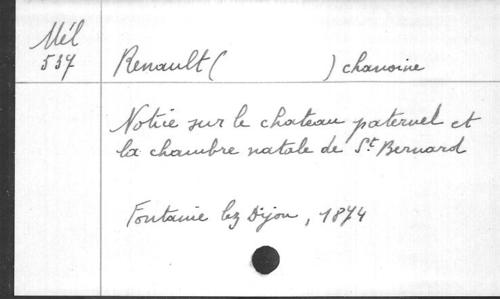 Mél
537
Renault (          ) chanoine
Notice sur le chateau paternel et
la chambre natale de St. Bernard
Fontaine lez Dijon, 1874